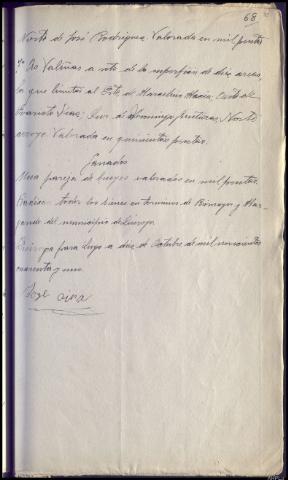 68
Norte de José Rodriguez Valorada en mil pesetas
7ª As Valiñas a de la superficie de diez areas,
la que limita al Este de Marcelino Oeste de
Evaristo Diaz, Sur de Dominga Norte
arroyo Valorada en quinientas pesetas.
Ganados
Una pareja de bueyes valorados en mil pesetas.
todos los bienes en terminos de y
del municipio de
para Lugo a diez de Octubre de mil novecientos
cuarenta y uno
José